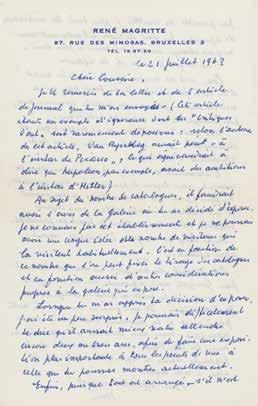 RENÉ MAGRITTE
97, RUE DES MIMOSAS, BRUXELLES 3
TÉL. 15.97.30
le 21 juillet 1963
Chère Cousine,
Je te remercie de ta lettre et de l'article
de journal que tu m'as envoyés – (cet article
étant un exemple d'ignorance dont les "critiques
d'art" sont rarement dépourvus : selon l'auteur
de cet article, Van aurait peint « à
l'instar de Picasso », ce qui équivaudrait à
dire que Napoléon par exemple, avait des ambitions
à l'instar d'Hitler)
Au sujet du nombre de catalogues, il faudrait
avoir l'avis de la galerie où tu as décidé d'exposer.
Je ne connais pas cet établissement et je ne pourrais
avoir une vague idée du nombre de visiteurs qui
la visitent habituellement. C'est en fonction de
ce nombre que l'on peut fixer le tirage des catalogues
et en fonction aussi d'autres considérations
propres à la galerie qui expose.
Lorsque tu m'as appris ta décision d'exposer,
j'ai été un peu surpris, je pensais
que tu aurais mieux valu attendre
encore deux ou trois ans, afin de faire une exposi-
tion plus importante à tous les points de vue à
celle que tu pourras montrer actuellement.
Enfin, puisque tout est arrangé, s'il n'est